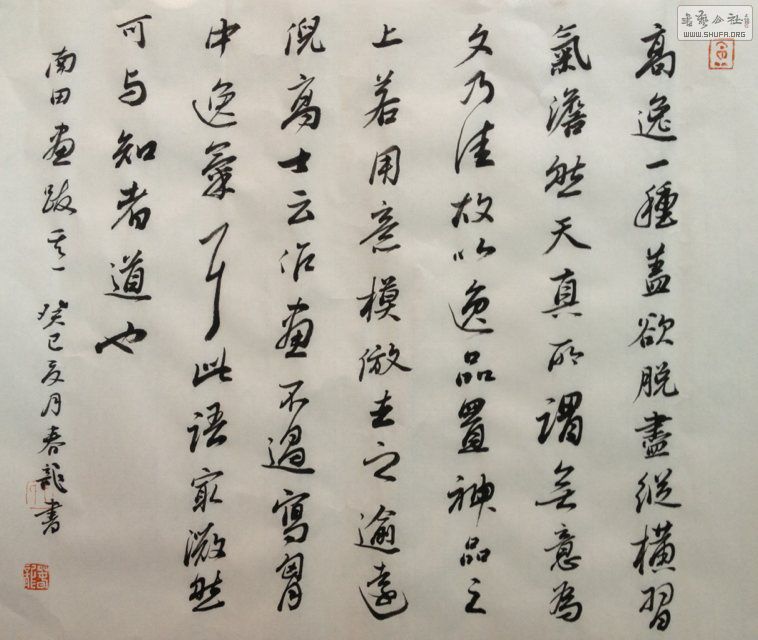 高逸一種蓋欲脫盡縱橫習
氣澹然天真所謂無意為
文乃佳故以逸品置神品之
上若用意模倣去之逾遠
倪高士云作畫不過寫胸
中逸氣耳此語最微然
可与知者道也
南田畫跋其一 癸巳夏月春龍書
書藝公社
WWW.SHUFA.ORG